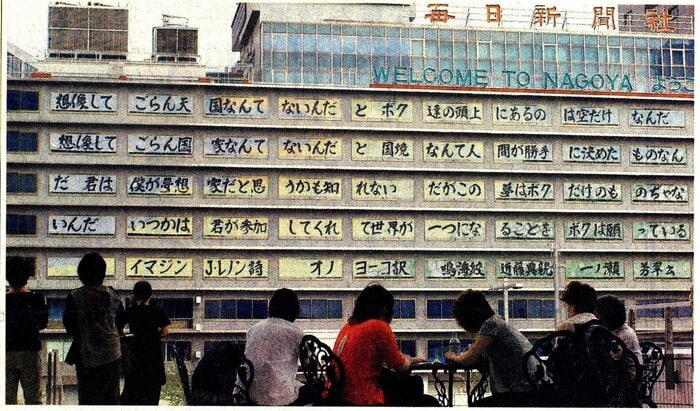 毎日新聞社
WELCOME TO NAGOYA ようこそ
想像して ごらん天 国なんて ないんだ と ボク 達の頭上 にあるの は空だけ なんだ
想像して ごらん国 家なんて ないんだ と 国境 なんて人 間が勝手 に決めた ものなん
だ 君は 僕が夢想 家だと思 うかも知 れない だがこの 夢はボク だけのも のぢゃな
いんだ いつかは 君が参加 してくれ て世界が 一つにな ることを ボクは願 っている
イマジン J・レノン詩 オノ ヨーコ訳 鳴海 近藤 一ノ瀬